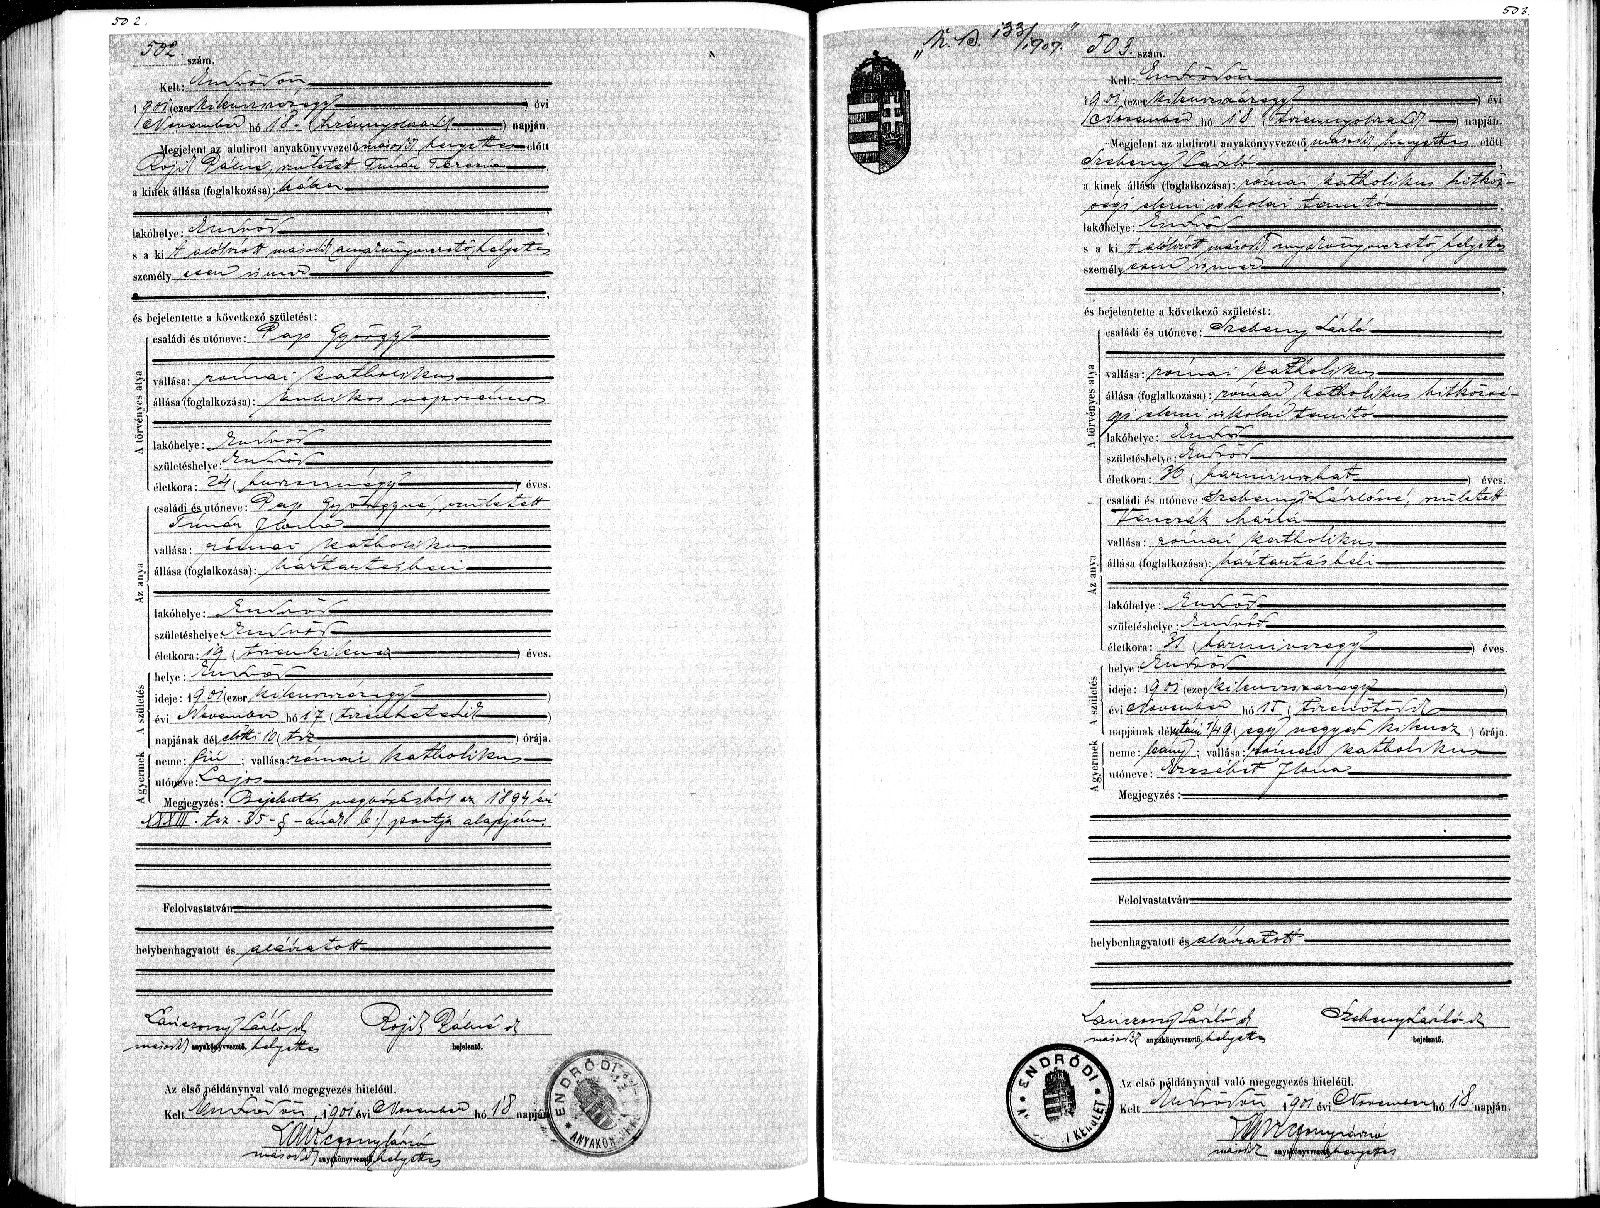 502.
502 szám.
Kelt: Endrődön
1901 (ezerkilencszázegy) évi
November hó 18. (tizennyolcadik) napján.
Megjelent az alulirott anyakönyvvezető második helyettes előtt
Pálné, született Tímár Terézia
a kinek állása (foglalkozása): bába
lakóhelye: Endrőd
s a ki t alólirott második anyakönyvvezető helyettes
személyesen ismer
és bejelentette a következő születést:
A törvényes atya
családi és utóneve: Pap György
vallása: római katholikus
állása (foglalkozása): kubikos napszámos
lakóhelye: Endrőd
születéshelye: Endrőd
életkora: 24 (huszonnégy) éves.
Az anya
családi és utóneve: Pap Györgyné, született
Tímár Ilona
vallása: római katholikus
állása (foglalkozása): háztartásbeli
lakóhelye: Endrőd
születéshelye: Endrőd
életkora: 19 (tizenkilenc) éves.
A születés
helye: Endrőd
ideje: 1901 (ezerkilencszázegy)
évi November hó 17 (tizenhetedik)
napjának dél előtti 10 (tíz) órája.
A gyermek
neme: fiú; vallása: római katholikus
utóneve: Lajos
Megjegyzés: Bejelentés meghozásból az 1894 évi
XXXIII. tcz. 35-§-ának b./ pontja alapján.
Felolvastatván
helybenhagyatott és aláiratott
Lánczonyi László sk
második anyakönyvvezető helyettes
Pálné sk
bejelentő.
Az első példánynyal való megegyezés hiteléül.
Kelt Endrődön, 1901 évi November hó 18 napján
Lánczonyi László
második anyakönyvvezető helyettes
ENDRŐDI
503.
„K. B. 133/1907.”
503. szám.
Kelt: Endrődön
1901 (ezerkilencszázegy) évi
November hó 18 (tizennyolcadik) napján.
Megjelent az alulirott anyakönyvvezető második helyettes előtt
Szebeny László
a kinek állása (foglalkozása): római katholikus hitköz-
ségi elemi iskolai tanító
lakóhelye: Endrőd
s a ki t alólirott második anyakönyvvezető helyettes
személyesen ismer
és bejelentette a következő születést:
A törvényes atya
családi és utóneve: Szebeny László
vallása: római katholikus
állása (foglalkozása): római katholikus hitközsé-
gi elemi iskolai tanító
lakóhelye: Endrőd
születéshelye: Endrőd
életkora: 36 (harminczhat) éves.
Az anya
családi és utóneve Szebeny Lászlóné, született
Mária
vallása: római katholikus
állása (foglalkozása): háztartásbeli
lakóhelye: Endrőd
születéshelye: Endrőd
életkora: 31 (harminczegy) éves
A születés
helye: Endrőd
ideje: 1901 (ezerkilencszázegy)
évi November hó 15 (tizenötödik)
napjának dél utáni 1/49 (egy negyed kilencz) órája.
A gyermek
neme: leány; vallása: római katholikus
utóneve: Erzsébet Ilona
Megjegyzés:
Felolvastatván
helybenhagyatott és aláiratott
Lánczonyi László sk
második anyakönyvvezető, helyettes
Szebeny László sk
bejelentő.
ENDRŐDI
Az első példánynyal való megegyezés hiteléül.
Kelt Endrődön 1901 évi November hó 18 napján.
Lánczonyi László
második anyakönyvvezető helyettes